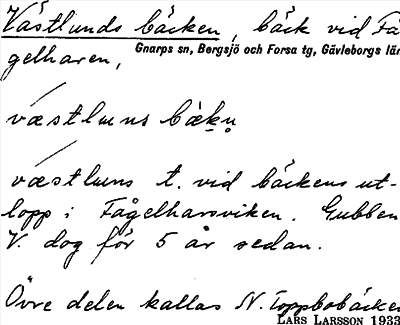 Västlunds bäcken, bäck vid Få
Gnarps sn, Bergsjö och Forsa tg, Gävleborgs län
gelharen,
væstluns bæ̀kn̥
væstluns t. vid bäckens ut-
lopp i Fågelharsviken. Gubben
V. dog för 5 år sedan.
Övre delen kallas N. Toppbobäcken
LARS LARSSON 1933